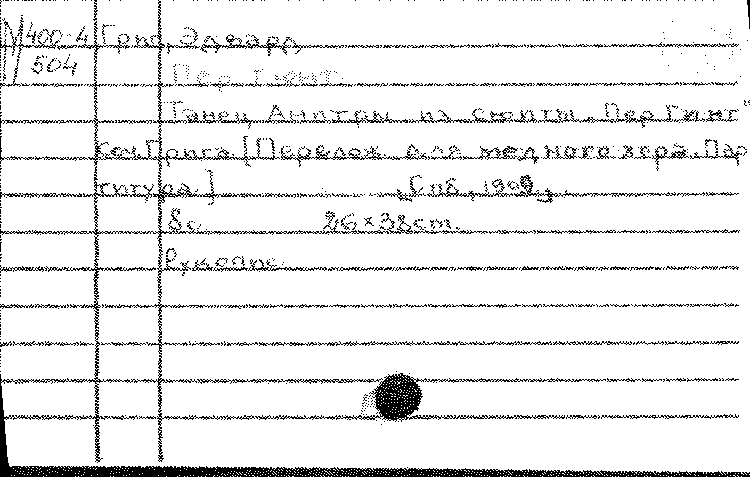 N 400-4 Григ, Эдвард
504
Пер Гюнт.
Танец Анитры из сюиты „Пер Гинт"
соч. Грига [Перелож. для медного хора. Пар
титура.] [Спб., 1909]
8 с. 26×38 cm.
Рукопис.